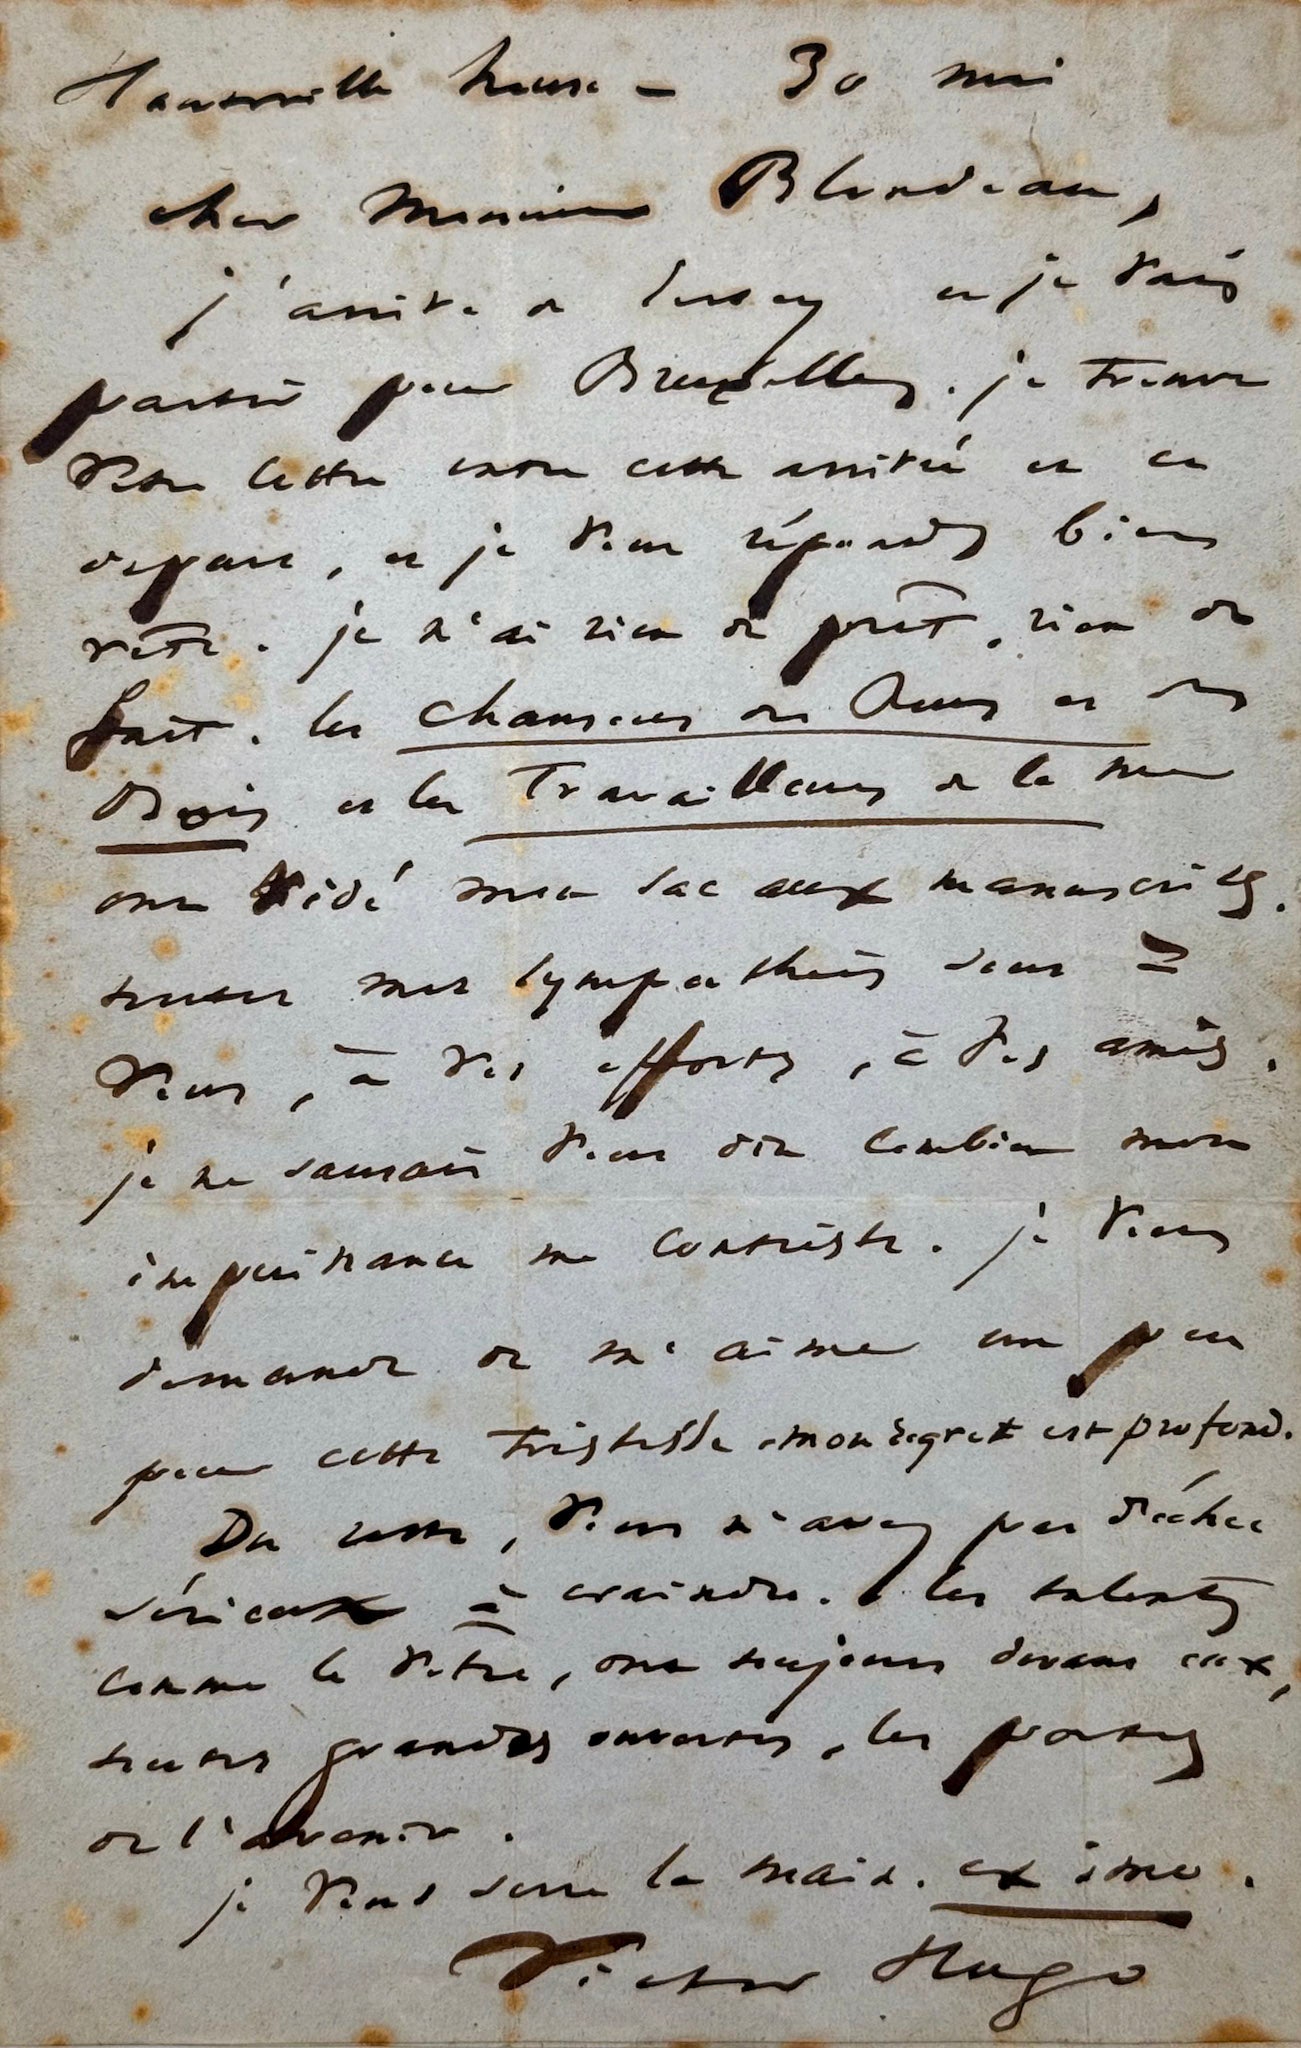 Hauteville house – 30 mai
cher Monsieur Blondeau,
j'arrive de Sercq et je vais
partir pour Bruxelles. je trouve
votre lettre entre cette arrivée et ce
départ, et je vous réponds bien
vite. je n'ai rien de prêt, rien de
fait. les Chansons des Rues et des
Bois et les Travailleurs de la mer
ont vidé mon sac aux manuscrits.
toutes mes sympathies sont à
vous, à vos efforts, à vos amis.
je ne saurais vous dire combien mon
impuissance me contriste. je vous
demande de m'aimer un peu
pour cette tristesse. mon regret est profond.
Du reste, vous n'avez pas d'échec
sérieux à craindre. les talents
comme le vôtre, ont toujours devant eux,
toutes grandes ouvertes, les portes
de l'avenir.
je vous serre la main. ex imo.
Victor Hugo